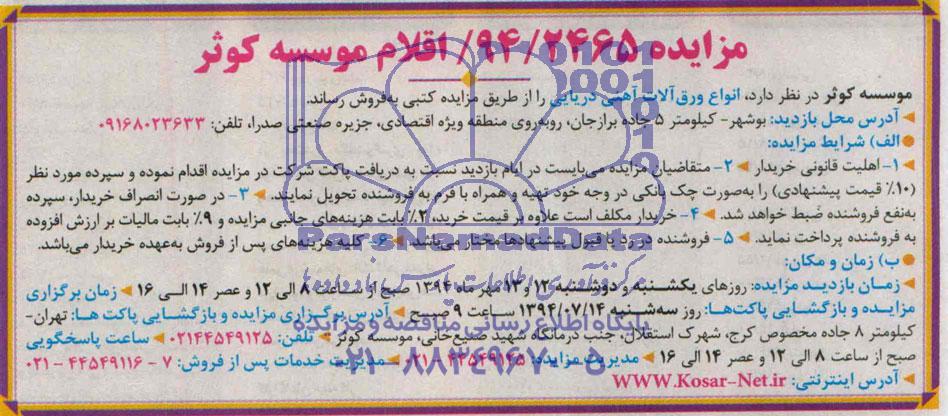 مزایده ۹۴/۲۴۶۵/ اقلام موسسه کوثر
موسسه کوثر در نظر دارد، انواع ورق‌آلات آهنی دریایی را از طریق مزایده کتبی به‌فروش رساند.
آدرس محل بازدید: بوشهر- کیلومتر ۵ جاده برازجان، روبه‌روی منطقه ویژه اقتصادی، جزیره صنعتی صدرا، تلفن: ۰۹۱۶۸۰۲۳۶۳۳
الف) شرایط مزایده:
۱- اهلیت قانونی خریدار ۲- متقاضیان مزایده می‌بایست در ایام بازدید نسبت به دریافت پاکت شرکت در مزایده اقدام نموده و سپرده مورد نظر
(۱۰٪ قیمت پیشنهادی) را به‌صورت چک بانکی در وجه خود تهیه و همراه با فرم به فروشنده تحویل نمایند. ۳- در صورت انصراف خریدار، سپرده
به‌نفع فروشنده ضبط خواهد شد. ۴- خریدار مکلف است علاوه بر قیمت خرید، ۲٪ بابت هزینه‌های جانبی مزایده و ۹٪ بابت مالیات بر ارزش افزوده
به فروشنده پرداخت نماید. ۵- فروشنده در رد یا قبول پیشنهادها مختار می‌باشد. ۶- کلیه هزینه‌های پس از فروش به‌عهده خریدار می‌باشد.
ب) زمان و مکان:
زمان بازدید مزایده: روزهای یکشنبه و دوشنبه ۱۲ و ۱۳ مهر ماه ۱۳۹۴ صبح از ساعت ۸ الی ۱۲ و عصر ۱۴ الی ۱۶ زمان برگزاری
مزایده و بازگشایی پاکت‌ها: روز سه‌شنبه ۱۳۹۴/۰۷/۱۴ ساعت ۹ صبح آدرس برگزاری مزایده و بازگشایی پاکت ها: تهران-
کیلومتر ۸ جاده مخصوص کرج، شهرک استقلال، جنب درمانگاه شهید صنیع‌خانی، موسسه کوثر تلفن: ۰۲۱۴۴۵۴۹۱۲۵ ساعت پاسخگویی
صبح از ساعت ۸ الی ۱۲ و عصر ۱۴ الی ۱۶ مدیریت مزایده: ۴۴۵۴۹۱۲۵-۰۲۱ مدیریت خدمات پس از فروش: ۷ - ۴۴۵۴۹۱۱۶ - ۰۲۱
آدرس اینترنتی: WWW.Kosar-Net.ir
ParsNamadData
پایگاه اطلاع رسانی مناقصه و مزایده
۰۲۱-۸۸۳۴۹۶۷۰-۵